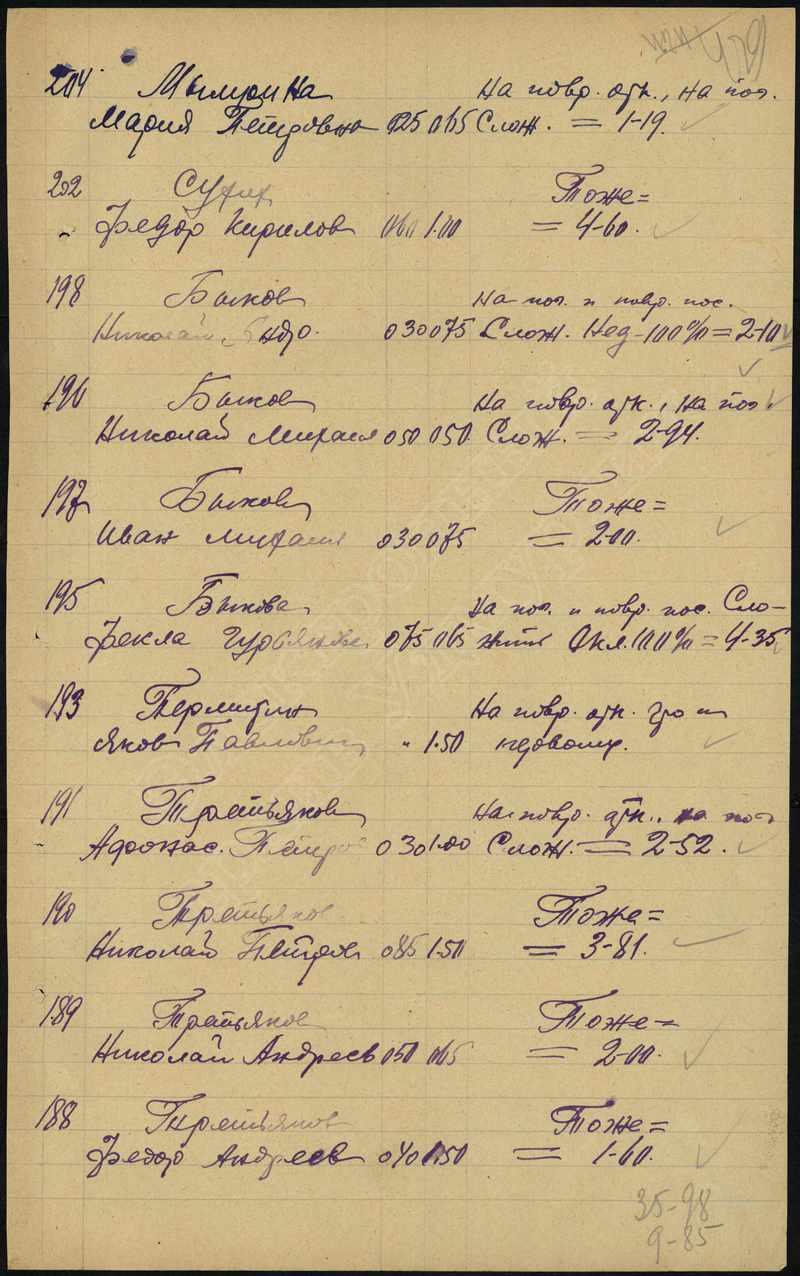 429
204 На повр. отк., на поз.
Мария Петровна 025 065 Слож. = 1-19.
202 Тоже=
" Федор Кирилов 060 1.00 = 4-60.
198 Быков На поз. и повр. пос.
Николай Андр. 030 075 Слож. Нед-100% = 2-10
196 Быков На повр. отк., на поз.
Николай Михаил 050 050 Слож. = 2-94.
197 Быков Тоже=
Иван Михаил 030 075 = 2-00.
195 Быкова На поз. и повр. пос. Сло-
Фекла Гурьянова 075 065 жить Окл. 100% = 4-35
193 На повр. отк.
Яков Павлович " 1.50
191 Третьяков На повр. отк., на поз
Афонас. Петров 030 1.00 Слож. = 2-52.
190 Третьяков Тоже=
Николай Петров 085 1.50 = 3-81.
189 Третьяков Тоже=
Николай Андреев 050 065 = 2-00.
188 Третьяков Тоже=
Федор Андреев 040 1.50 = 1-60.
35-98
9-85